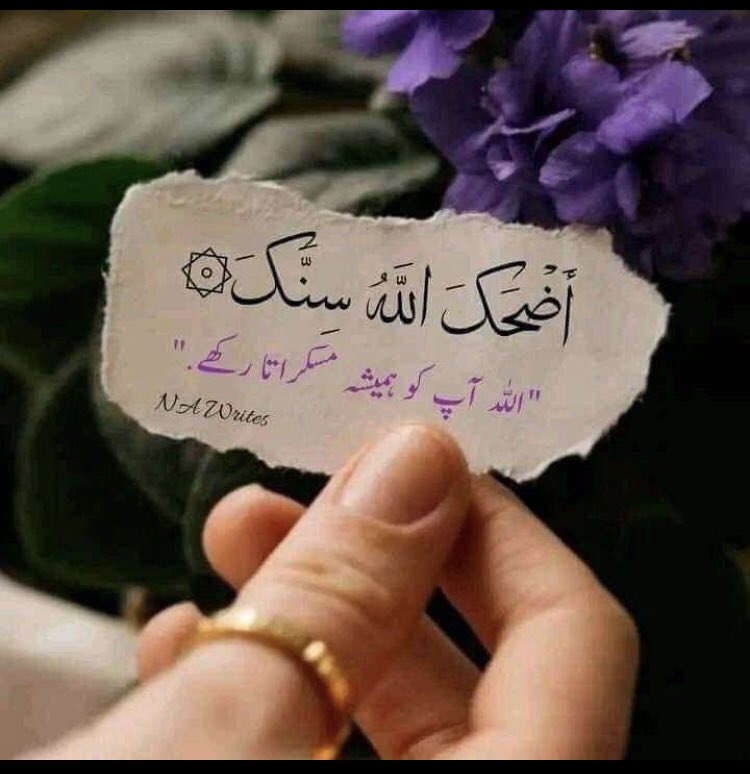 أَضْحَكَ اللَّهُ سِنَّكَ ۞
"اللہ آپ کو ہمیشہ مسکراتا رکھے."
NA Writes